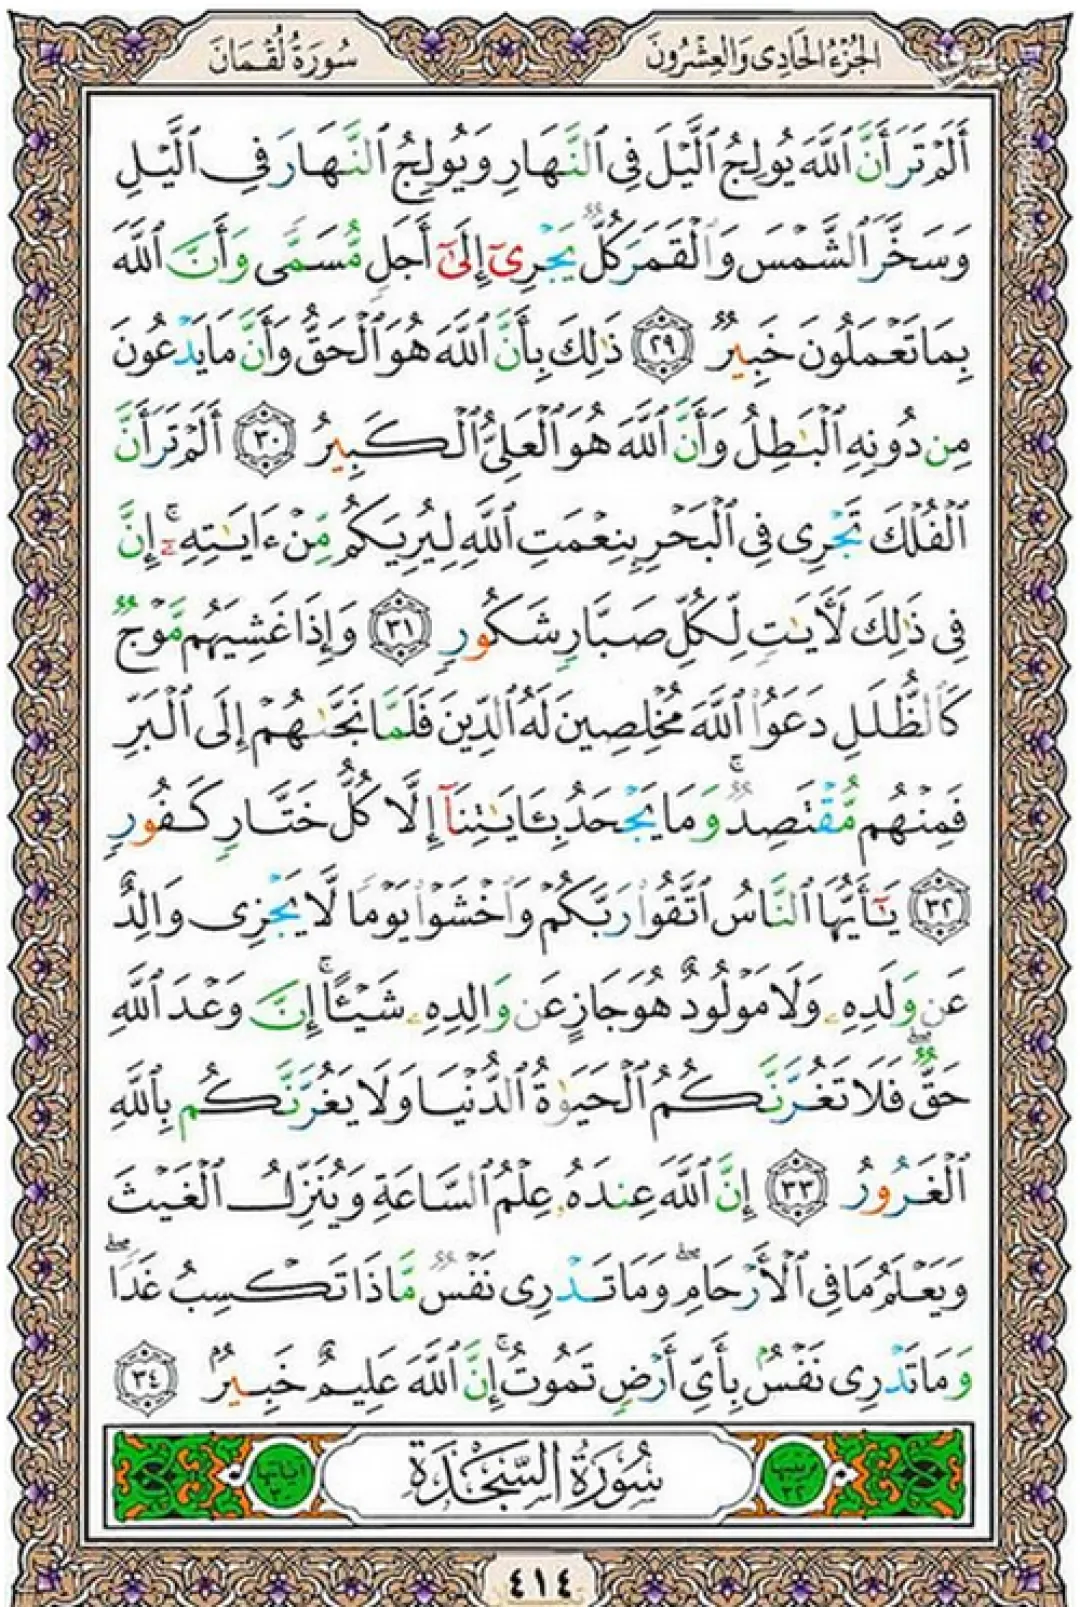 الجُزْءُ الحَادِى وَالعِشْرُونَ
سُورَةُ لُقْمَانَ
أَلَمْ تَرَ أَنَّ ٱللَّهَ يُولِجُ ٱلَّيْلَ فِى ٱلنَّهَارِ وَيُولِجُ ٱلنَّهَارَ فِى ٱلَّيْلِ
وَسَخَّرَ ٱلشَّمْسَ وَٱلْقَمَرَ كُلٌّ يَجْرِىٓ إِلَىٰٓ أَجَلٍ مُّسَمًّى وَأَنَّ ٱللَّهَ
بِمَا تَعْمَلُونَ خَبِيرٌ ٢٩ ذَٰلِكَ بِأَنَّ ٱللَّهَ هُوَ ٱلْحَقُّ وَأَنَّ مَا يَدْعُونَ
مِن دُونِهِ ٱلْبَٰطِلُ وَأَنَّ ٱللَّهَ هُوَ ٱلْعَلِىُّ ٱلْكَبِيرُ ٣٠ أَلَمْ تَرَ أَنَّ
ٱلْفُلْكَ تَجْرِى فِى ٱلْبَحْرِ بِنِعْمَتِ ٱللَّهِ لِيُرِيَكُم مِّنْ ءَايَٰتِهِۦٓ ۚ إِنَّ
فِى ذَٰلِكَ لَءَايَٰتٍ لِّكُلِّ صَبَّارٍ شَكُورٍ ٣١ وَإِذَا غَشِيَهُم مَّوْجٌ
كَٱلظُّلَلِ دَعَوُا۟ ٱللَّهَ مُخْلِصِينَ لَهُ ٱلدِّينَ فَلَمَّا نَجَّىٰهُمْ إِلَى ٱلْبَرِّ
فَمِنْهُم مُّقْتَصِدٌ ۚ وَمَا يَجْحَدُ بِـَٔايَٰتِنَآ إِلَّا كُلُّ خَتَّارٍ كَفُورٍ
٣٢ يَٰٓأَيُّهَا ٱلنَّاسُ ٱتَّقُوا۟ رَبَّكُمْ وَٱخْشَوْا۟ يَوْمًا لَّا يَجْزِى وَالِدٌ
عَن وَلَدِهِۦ وَلَا مَوْلُودٌ هُوَ جَازٍ عَن وَالِدِهِۦ شَيْـًٔا ۚ إِنَّ وَعْدَ ٱللَّهِ
حَقٌّ ۖ فَلَا تَغُرَّنَّكُمُ ٱلْحَيَوٰةُ ٱلدُّنْيَا وَلَا يَغُرَّنَّكُم بِٱللَّهِ
ٱلْغَرُورُ ٣٣ إِنَّ ٱللَّهَ عِندَهُۥ عِلْمُ ٱلسَّاعَةِ وَيُنَزِّلُ ٱلْغَيْثَ
وَيَعْلَمُ مَا فِى ٱلْأَرْحَامِ ۖ وَمَا تَدْرِى نَفْسٌ مَّاذَا تَكْسِبُ غَدًا ۖ
وَمَا تَدْرِى نَفْسٌۢ بِأَىِّ أَرْضٍ تَمُوتُ ۚ إِنَّ ٱللَّهَ عَلِيمٌ خَبِيرٌۢ ٣٤
ترتيبها ٣٢
سُورَةُ السَّجْدَةِ
آياتها ٣٠
٤١٤